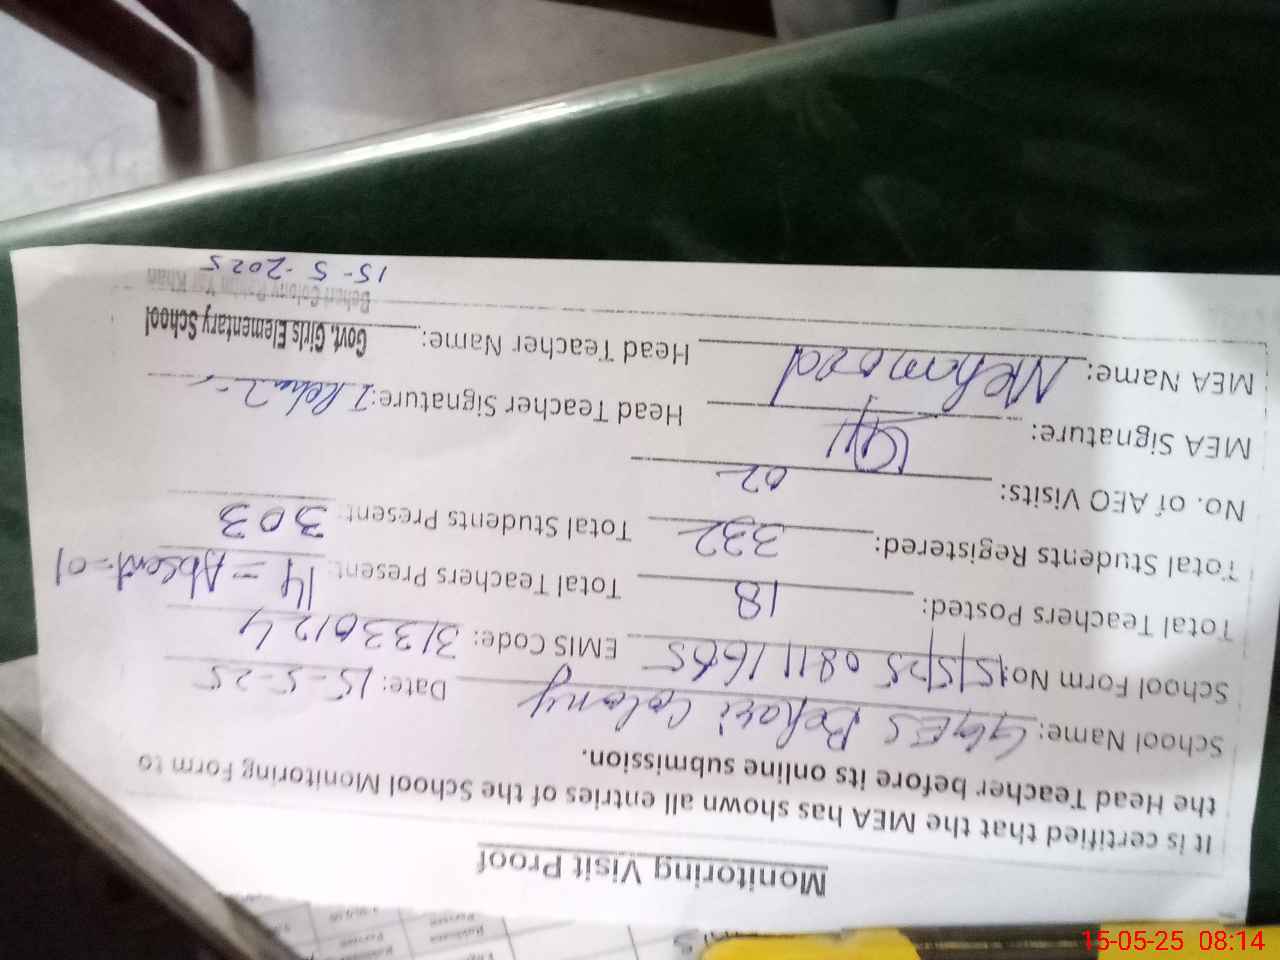 Monitoring Visit Proof
It is certified that the MEA has shown all entries of the School Monitoring Form to
the Head Teacher before its online submission.
School Name: GGES Behari Colony Date: 15-5-25
School Form No: 15/5/25 08111665 EMIS Code: 31330124
Total Teachers Posted: 18 Total Teachers Present: 14 = Absent = 01
Total Students Registered: 332 Total Students Present: 303
No. of AEO Visits: 02
MEA Signature: Head Teacher Signature:
MEA Name: Head Teacher Name: Govt. Girls Elementary School
Behari Colony Rahim Yar Khan
15-5-2025
15-05-25 08:14